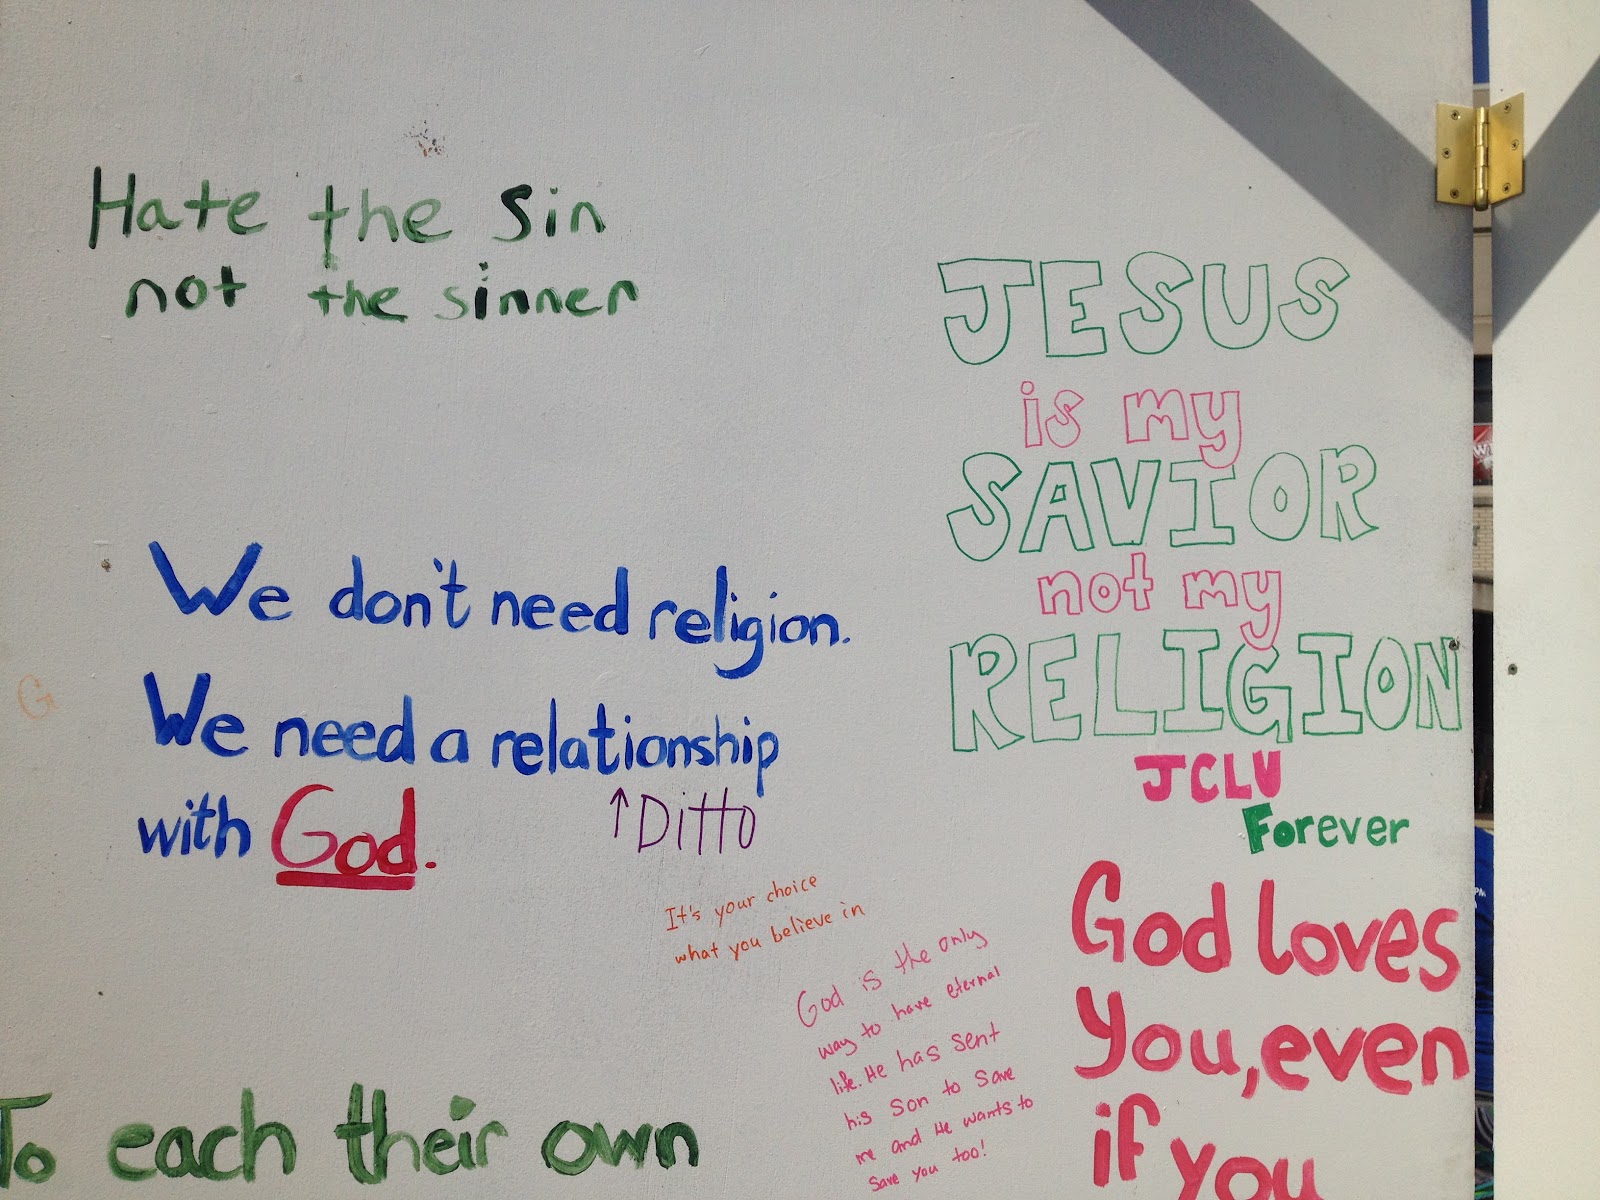 Hate the Sin
not the sinner
JESUS
is my
SAVIOR
not my
RELIGION
JCLU
Forever
We don't need religion.
We need a relationship
with God.
↑Ditto
G
It's your choice
what you believe in
God is the only
way to have eternal
life. He has sent
his Son to Save
me and He wants to
Save you too!
God loves
You, even
if you
To each their own